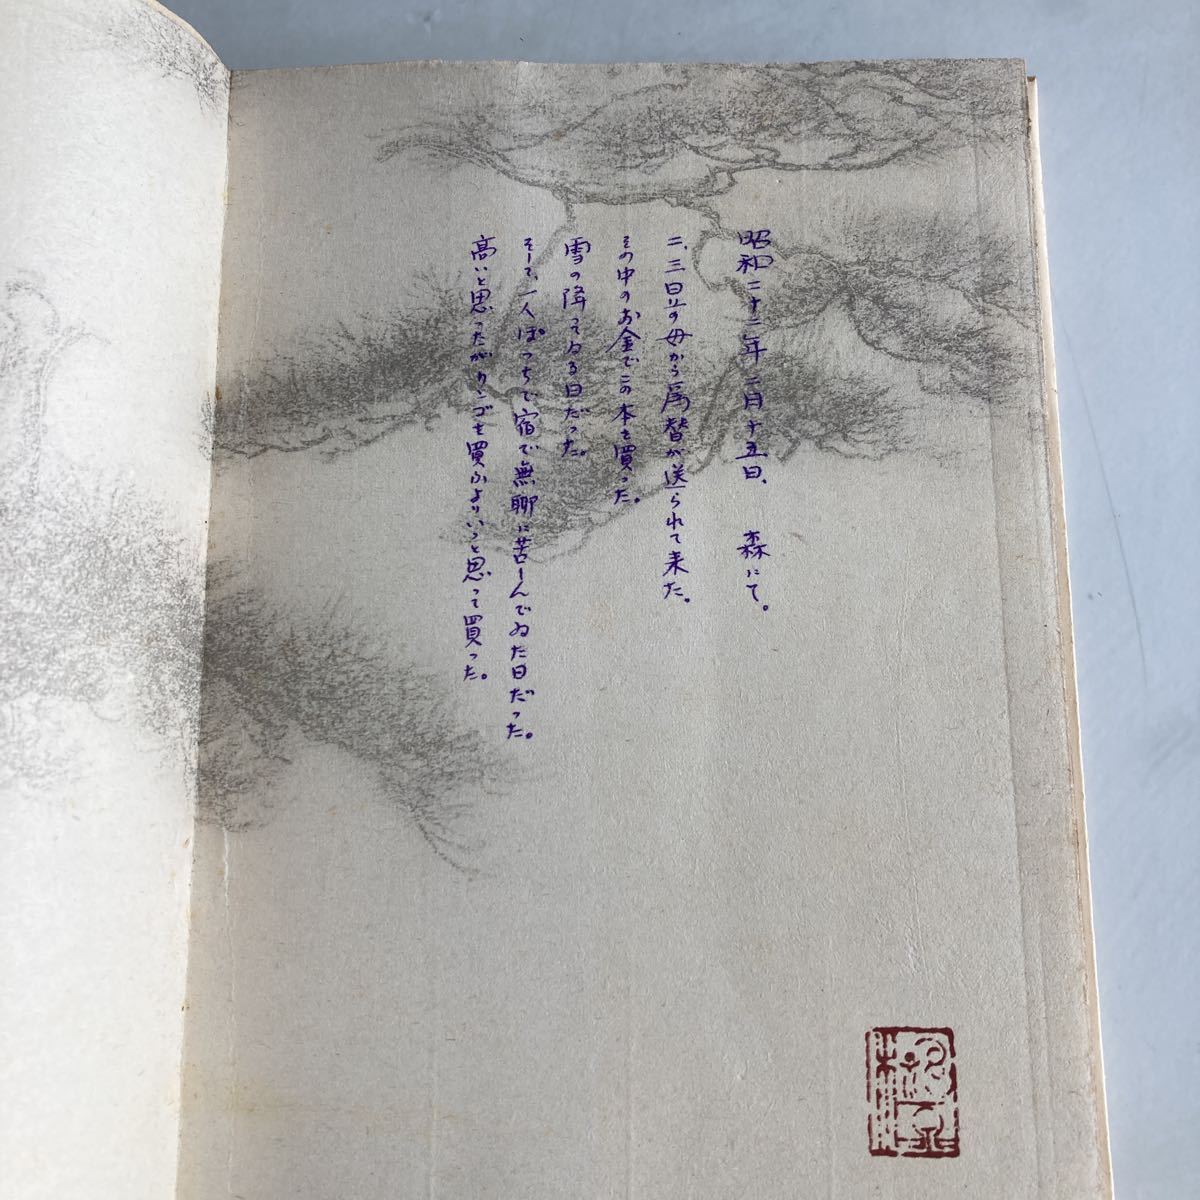 昭和二十二年二月十五日、　森にて。
二、三日前の母から為替が送られて来た。
その中のお金でこの本を買った。
雪の降ってゐる日だった。
そして、一人ぽっちで宿で無聊に苦しんでゐた日だった。
高いと思ったがリンゴを買ふよりいゝと思って買った。